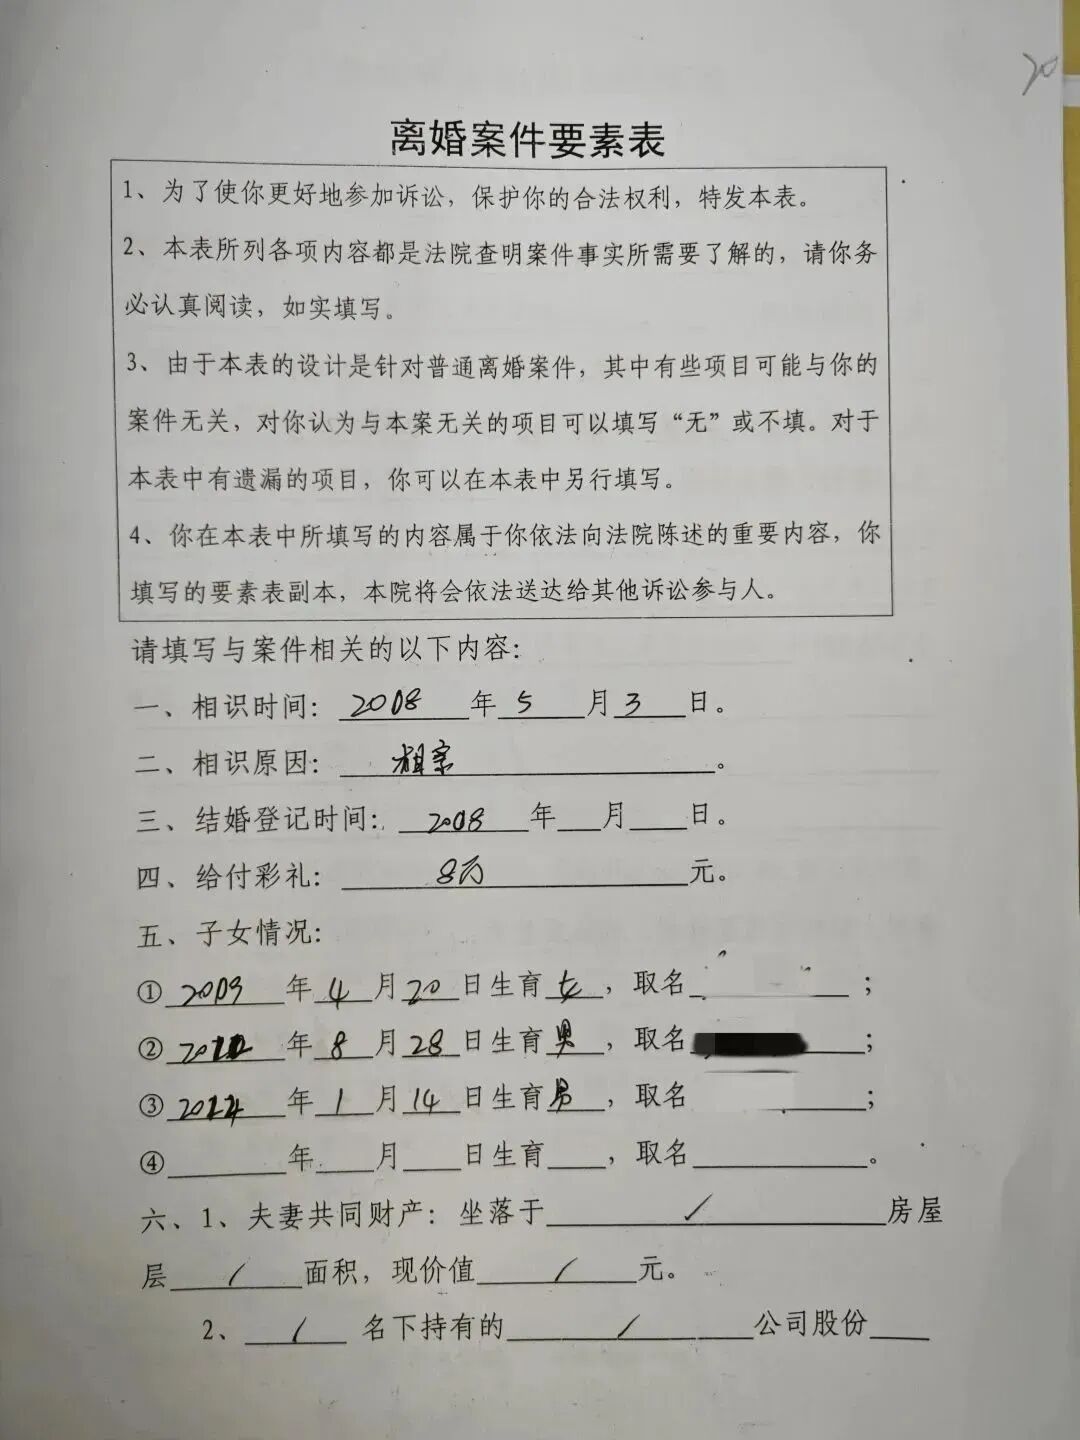 20
离婚案件要素表
1、为了使你更好地参加诉讼，保护你的合法权利，特发本表。
2、本表所列各项内容都是法院查明案件事实所需要了解的，请你务
必认真阅读，如实填写。
3、由于本表的设计是针对普通离婚案件，其中有些项目可能与你的
案件无关，对你认为与本案无关的项目可以填写“无”或不填。对于
本表中有遗漏的项目，你可以在本表中另行填写。
4、你在本表中所填写的内容属于你依法向法院陈述的重要内容，你
填写的要素表副本，本院将会依法送达给其他诉讼参与人。
请填写与案件相关的以下内容：
一、相识时间：2008年5月3日。
二、相识原因：相亲。
三、结婚登记时间：2008年 月 日。
四、给付彩礼：8万元。
五、子女情况：
①2009年4月20日生育女，取名 ；
② 年8月28日生育男，取名 ；
③ 年1月14日生育男，取名 ；
④ 年 月 日生育 ，取名 。
六、1、夫妻共同财产：坐落于 / 房屋
层 / 面积，现价值 / 元。
2、 / 名下持有的 / 公司股份